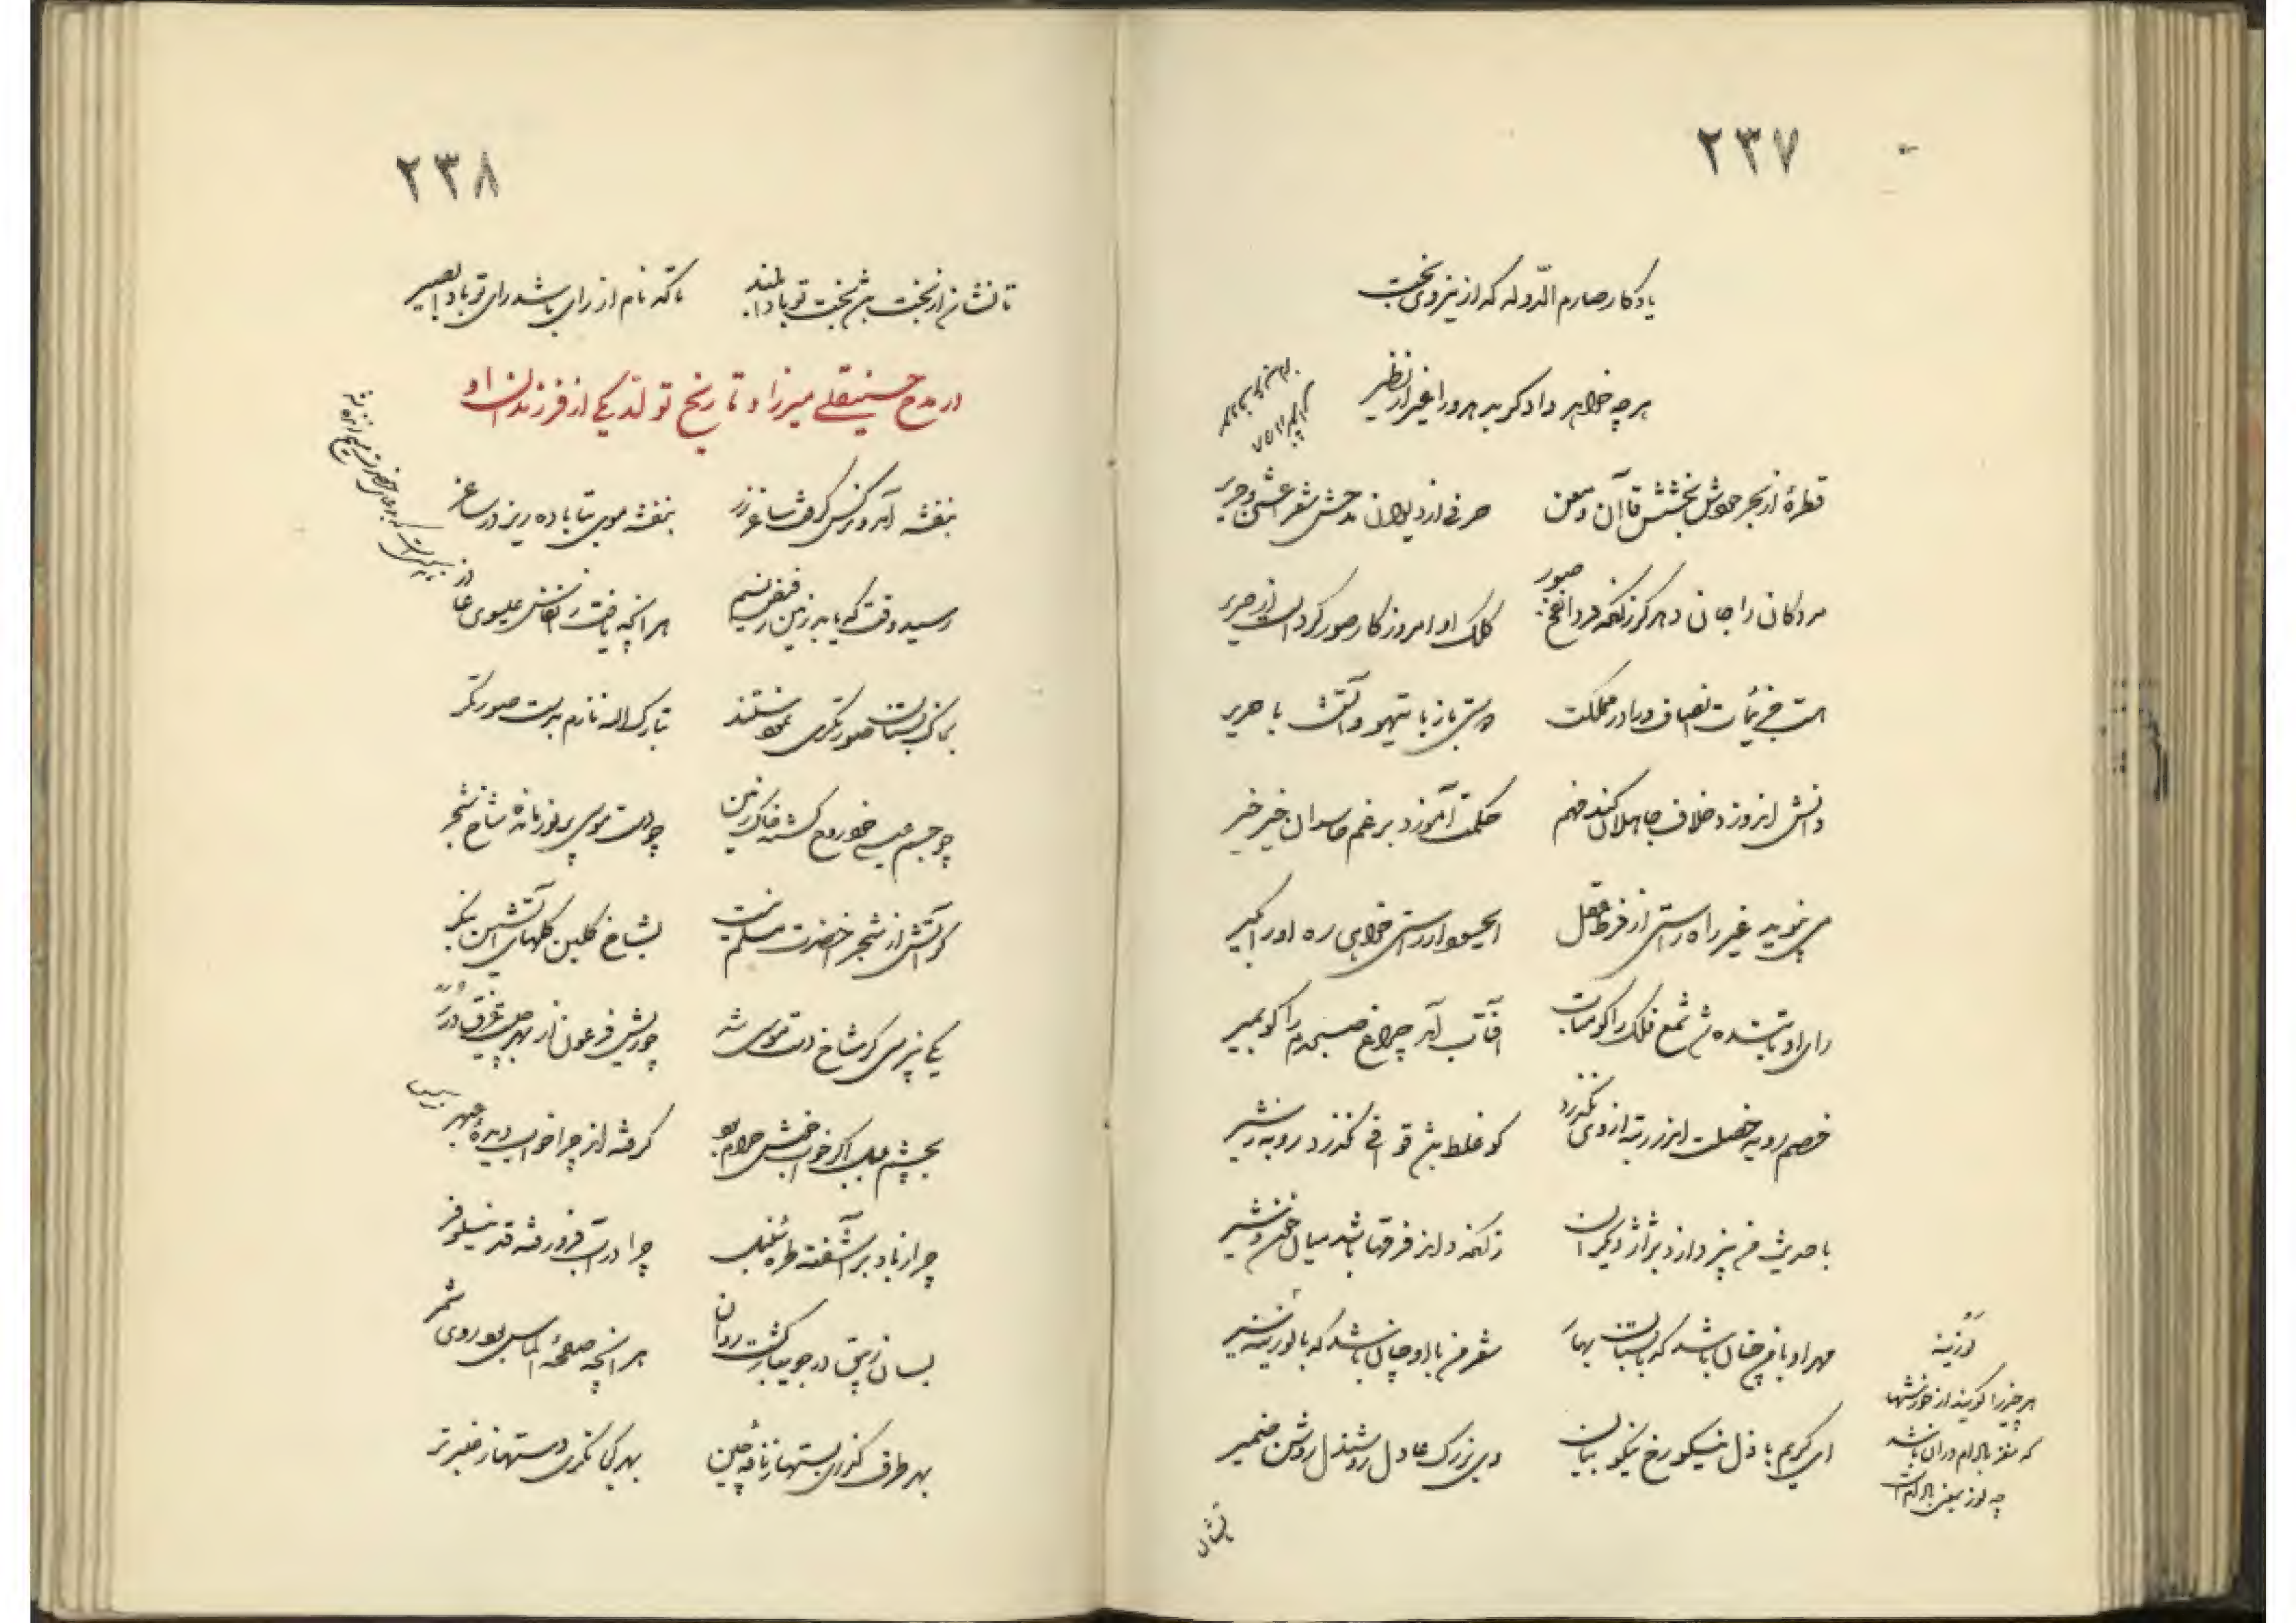 ۲۳۷
یادگار صارم الدوله که از نیروی بخت
هرچه خواهد داد گر بدهد ورا غیر از نظیر
قطرهٔ از بحر جودش بخشش قاآن و معن حرفی از دیوان مدحش شعر اعشی و جریر
مردگان را جان دهد گر زانکه فردا نفخ صور کلک او امروز کار صور کرد است از صریر
است در انصاف و داد در مملکت آشتی باز با تیهو و آتش با حریر
دانش افروزد خلاف جاهلان کند فهم حکمت آموزد برغم حاسدان خیر خیر
می نپوید غیر راه راستی از فرط عقل راستی خواهی ره او را بگیر
رای او تابنده شد شمع فلک را گو متاب آفتاب آمد چراغ صبحدم را گو بمیر
خصم روبه خصلت ار در رتبه از وی نگذرد گو غلط بشد قوافی نگذرد روبه ز شیر
با حدیث من نپردازد به ژاژ دیگران زانکه داند فرقها باشد میان خون و شیر
مهر او با من چنان باشد که با بستان بهار شعر من با او چنان باشد که با لوزینه سیر
ای کریم باذل نیکو رخ نیکو بیان وی بزرگ عادل روشندل روشن ضمیر
لوزینه
هر چیز را گویند از خورشها
که مغز بادام در آن باشد
چه لوز بمعنی بادام است
تا نشان
۲۳۸
تا نشان از بخت باشد بخت تو بادا بلند تا که نام از رای باشد رای تو بادا بصیر
در مدح حسینقلی میرزا و تاریخ تولد یکی از فرزندان او
بنفشه آمد و نرگس گرفت ساغر زر بنفشه موی بتا باده ریز در ساغر
رسید وقت که یابد زمین ز فیض نسیم هر آنچه یافت ز انفاس عیسوی عازر
بخاک بستان صورتگری نمودستند تبارک الله نازم بدست صورتگر
چو جسم عیسی خود روح گشته خاک زمین چو دست موسی پر نور مانده شاخ شجر
گر آتش از شجر اخضرت مسلم نیست بشاخ گلبن گلهای آتشین بنگر
یکی نپرسی گر شاخ دست موسی شد چو ریش فرعون از بهر چیست غرق درر
بچشم بلبل اگر خواب خوش حرام بود گرفته از چه خواب دیدهٔ عبهر
چرا ز باد برآشفته طره سنبل چرا در آب فرو رفته قد نیلوفر
بسان زیبق در جویبار گشت روان هر آنچه صفحهٔ الماس بود روی شمر
بهر طرف گذری بستها ز نافهٔ چین بهر کجا نگری دستها ز عنبر تر